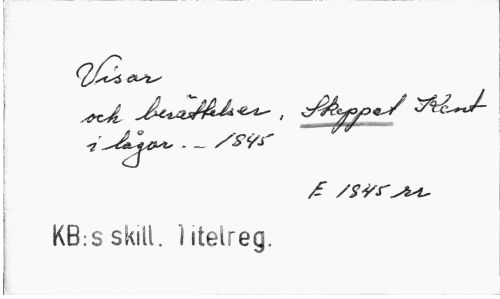 Visor
och berättelser. Skeppet Kent
i lågor. – 1845
F 1845 rr
KB:s skill. Titelreg.